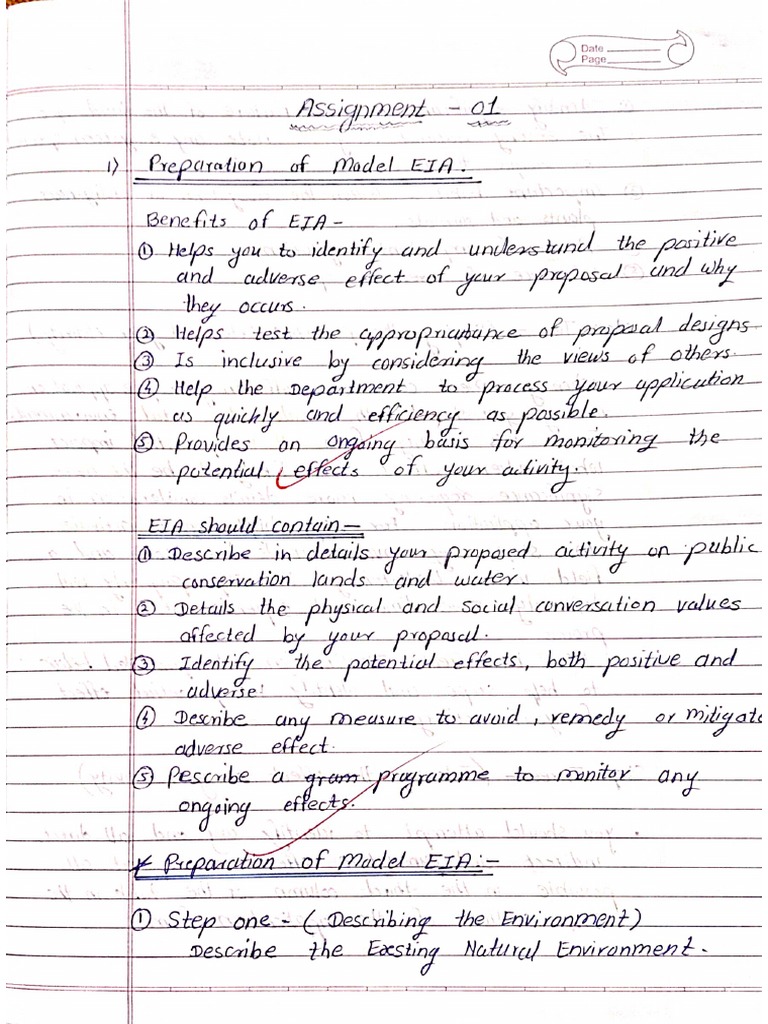 Date
Page
Assignment - 01
1) Preparation of Model EIA.
Benefits of EIA -
① Helps you to identify and understand the positive
and adverse effect of your proposal and why
they occurs.
② Helps test the appropriatance of proposal designs
③ Is inclusive by considering the views of others.
④ Help the Department to process your application
as quickly and efficiency as possible.
⑤ Provides on ongoing basis for monitoring the
potential effects of your activity.
EIA should contain -
① Describe in details your proposed activity on public
conservation lands and water
② Details the physical and social conversation values
affected by your proposal.
③ Identify the potential effects, both positive and
adverse.
④ Describe any measure to avoid, remedy or mitigate
adverse effect.
⑤ Describe a gram programme to monitor any
ongoing effects.
* Preparation of Model EIA:-
① Step one - (Describing the Environment)
Describe the Exsting Natural Environment.